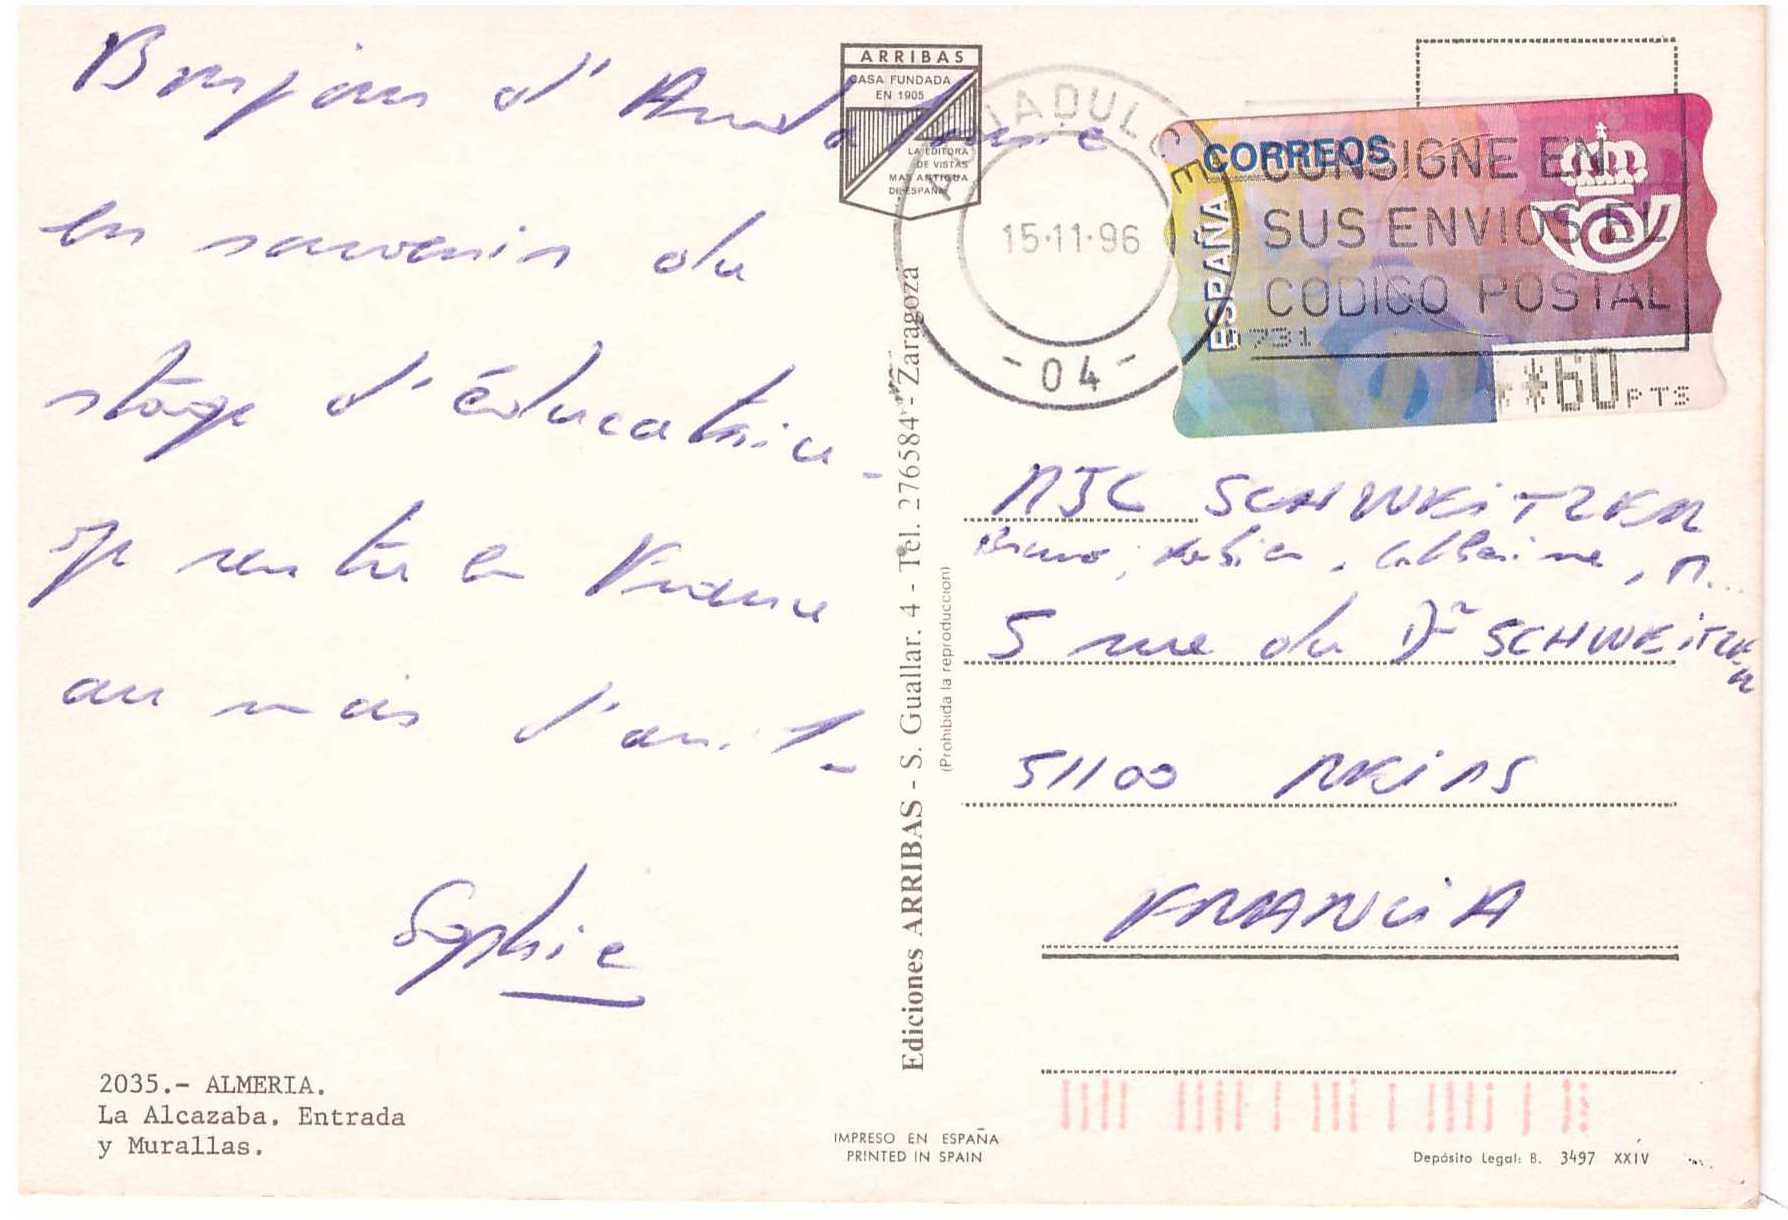 Bonjour d'Andalousie
en souvenir du
stage d'éducatrice.
Je rentre en France
au mois d'avril.
Sophie
2035.- ALMERIA.
La Alcazaba. Entrada
y Murallas.
ARRIBAS
CASA FUNDADA
EN 1905
LA EDITORA
DE VISTAS
MAS ANTIGUA
DE ESPAÑA
Ediciones ARRIBAS - S. Guallar. 4 - Tel. 276584 - Zaragoza
(Prohibida la reproduccion)
IMPRESO EN ESPAÑA
PRINTED IN SPAIN
AGUADULCE
15·11·96
-04-
CONSIGNE EN
SUS ENVIOS EL
CODIGO POSTAL
CORREOS
ESPAÑA
**60 PTS
MJC SCHWEITZER
Bruno, Catherine, M...
5 rue du Dr SCHWEITZER
51100 REIMS
FRANCIA
Depósito Legal: B. 3497 XXIV